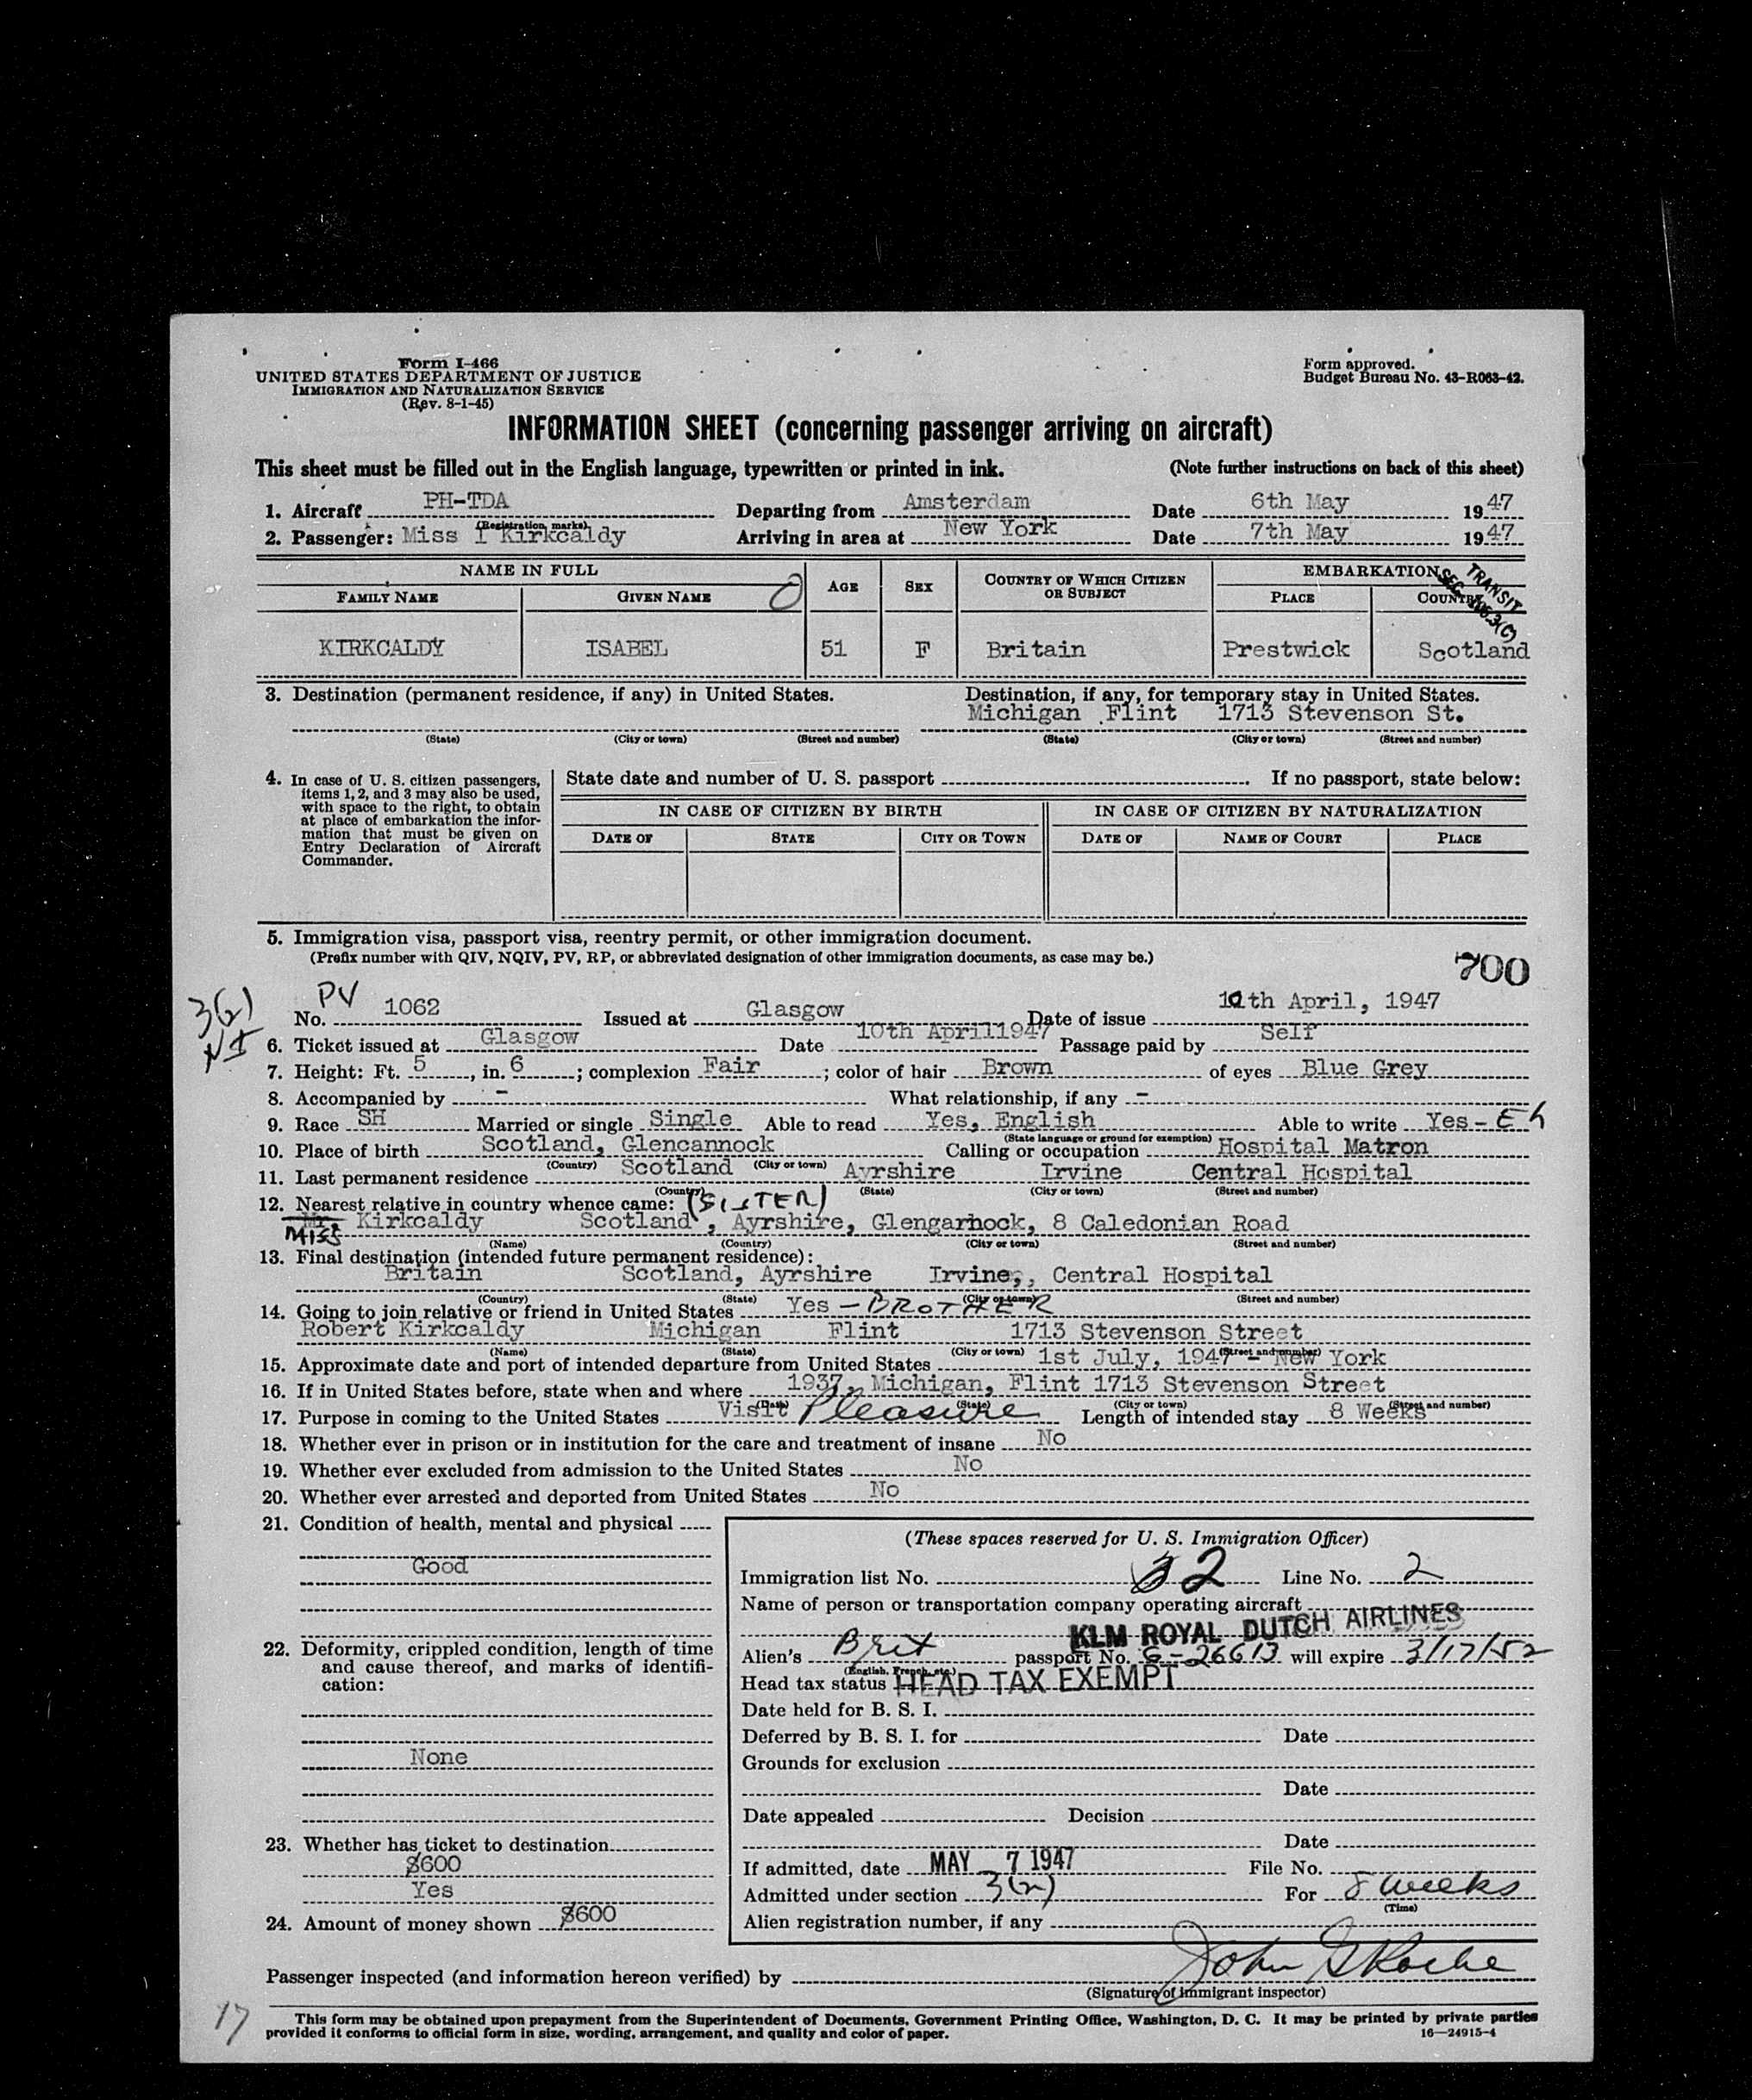 Form I-466
UNITED STATES DEPARTMENT OF JUSTICE
IMMIGRATION AND NATURALIZATION SERVICE
(Rev. 8-1-45)
Form approved.
Budget Bureau No. 43-R063-42.
INFORMATION SHEET (concerning passenger arriving on aircraft)
This sheet must be filled out in the English language, typewritten or printed in ink. (Note further instructions on back of this sheet)
1. Aircraft PH-TDA Departing from Amsterdam Date 6th May 1947
(Registration marks)
2. Passenger: Miss I Kirkcaldy Arriving in area at New York Date 7th May 1947
NAME IN FULL AGE SEX COUNTRY OF WHICH CITIZEN OR SUBJECT EMBARKATION
FAMILY NAME GIVEN NAME PLACE COUNTRY
TRANSIT
KIRKCALDY ISABEL 51 F Britain Prestwick Scotland
3. Destination (permanent residence, if any) in United States. Destination, if any, for temporary stay in United States.
Michigan Flint 1713 Stevenson St.
(State) (City or town) (Street and number) (State) (City or town) (Street and number)
4. In case of U. S. citizen passengers, items 1, 2, and 3 may also be used, with space to the right, to obtain at place of embarkation the information that must be given on Entry Declaration of Aircraft Commander.
State date and number of U. S. passport If no passport, state below:
IN CASE OF CITIZEN BY BIRTH IN CASE OF CITIZEN BY NATURALIZATION
DATE OF STATE CITY OR TOWN DATE OF NAME OF COURT PLACE
5. Immigration visa, passport visa, reentry permit, or other immigration document.
(Prefix number with QIV, NQIV, PV, RP, or abbreviated designation of other immigration documents, as case may be.)
700
3(2)
NI
No. PV 1062 Issued at Glasgow Date of issue 10th April, 1947
6. Ticket issued at Glasgow Date 10th April1947 Passage paid by Self
7. Height: Ft. 5, in. 6; complexion Fair; color of hair Brown of eyes Blue Grey
8. Accompanied by - What relationship, if any -
9. Race SH Married or single Single Able to read Yes, English Able to write Yes - Eh
(State language or ground for exemption)
10. Place of birth Scotland, Glencannock Calling or occupation Hospital Matron
(Country) (City or town)
11. Last permanent residence Scotland Ayrshire Irvine Central Hospital
(Country) (State) (City or town) (Street and number)
12. Nearest relative in country whence came: (SISTER)
Mr. MISS Kirkcaldy Scotland, Ayrshire, Glengarnock, 8 Caledonian Road
(Name) (Country) (City or town) (Street and number)
13. Final destination (intended future permanent residence):
Britain Scotland, Ayrshire Irvine,, Central Hospital
(Country) (State) (City or town) (Street and number)
14. Going to join relative or friend in United States Yes - BROTHER
Robert Kirkcaldy Michigan Flint 1713 Stevenson Street
(Name) (State) (City or town) (Street and number)
15. Approximate date and port of intended departure from United States 1st July, 1947 - New York
16. If in United States before, state when and where 1937, Michigan, Flint 1713 Stevenson Street
(Date) (State) (City or town) (Street and number)
17. Purpose in coming to the United States Visit Pleasure Length of intended stay 8 Weeks
18. Whether ever in prison or in institution for the care and treatment of insane No
19. Whether ever excluded from admission to the United States No
20. Whether ever arrested and deported from United States No
21. Condition of health, mental and physical
Good
22. Deformity, crippled condition, length of time and cause thereof, and marks of identification:
None
23. Whether has ticket to destination
$600
Yes
24. Amount of money shown $600
(These spaces reserved for U. S. Immigration Officer)
Immigration list No. 32 Line No. 2
Name of person or transportation company operating aircraft
KLM ROYAL DUTCH AIRLINES
Alien's Brit passport No. G-26613 will expire 3/17/52
(English, French, etc.)
Head tax status HEAD TAX EXEMPT
Date held for B. S. I.
Deferred by B. S. I. for Date
Grounds for exclusion
Date
Date appealed Decision
Date
If admitted, date MAY 7 1947 File No.
Admitted under section 3(2) For 8 weeks
(Time)
Alien registration number, if any
Passenger inspected (and information hereon verified) by John G Roche
(Signature of immigrant inspector)
17
This form may be obtained upon prepayment from the Superintendent of Documents, Government Printing Office, Washington, D. C. It may be printed by private parties
provided it conforms to official form in size, wording, arrangement, and quality and color of paper. 16—24915-4